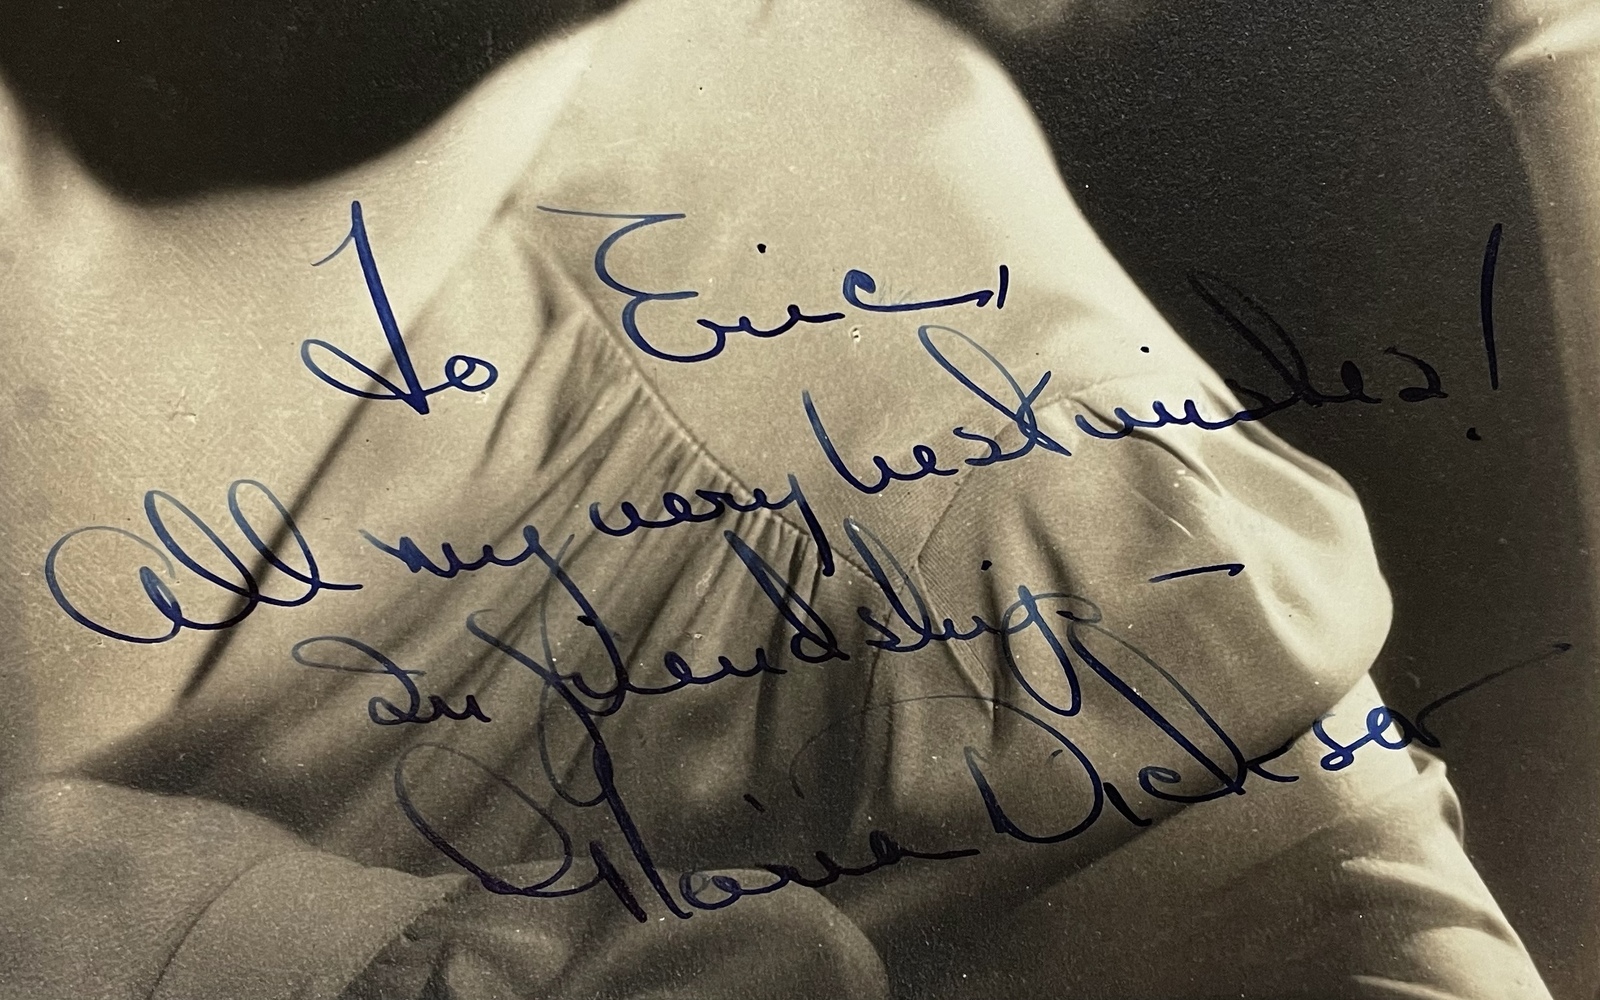 To Eric,
All my very best wishes!
In friendship –
Gloria Dickson